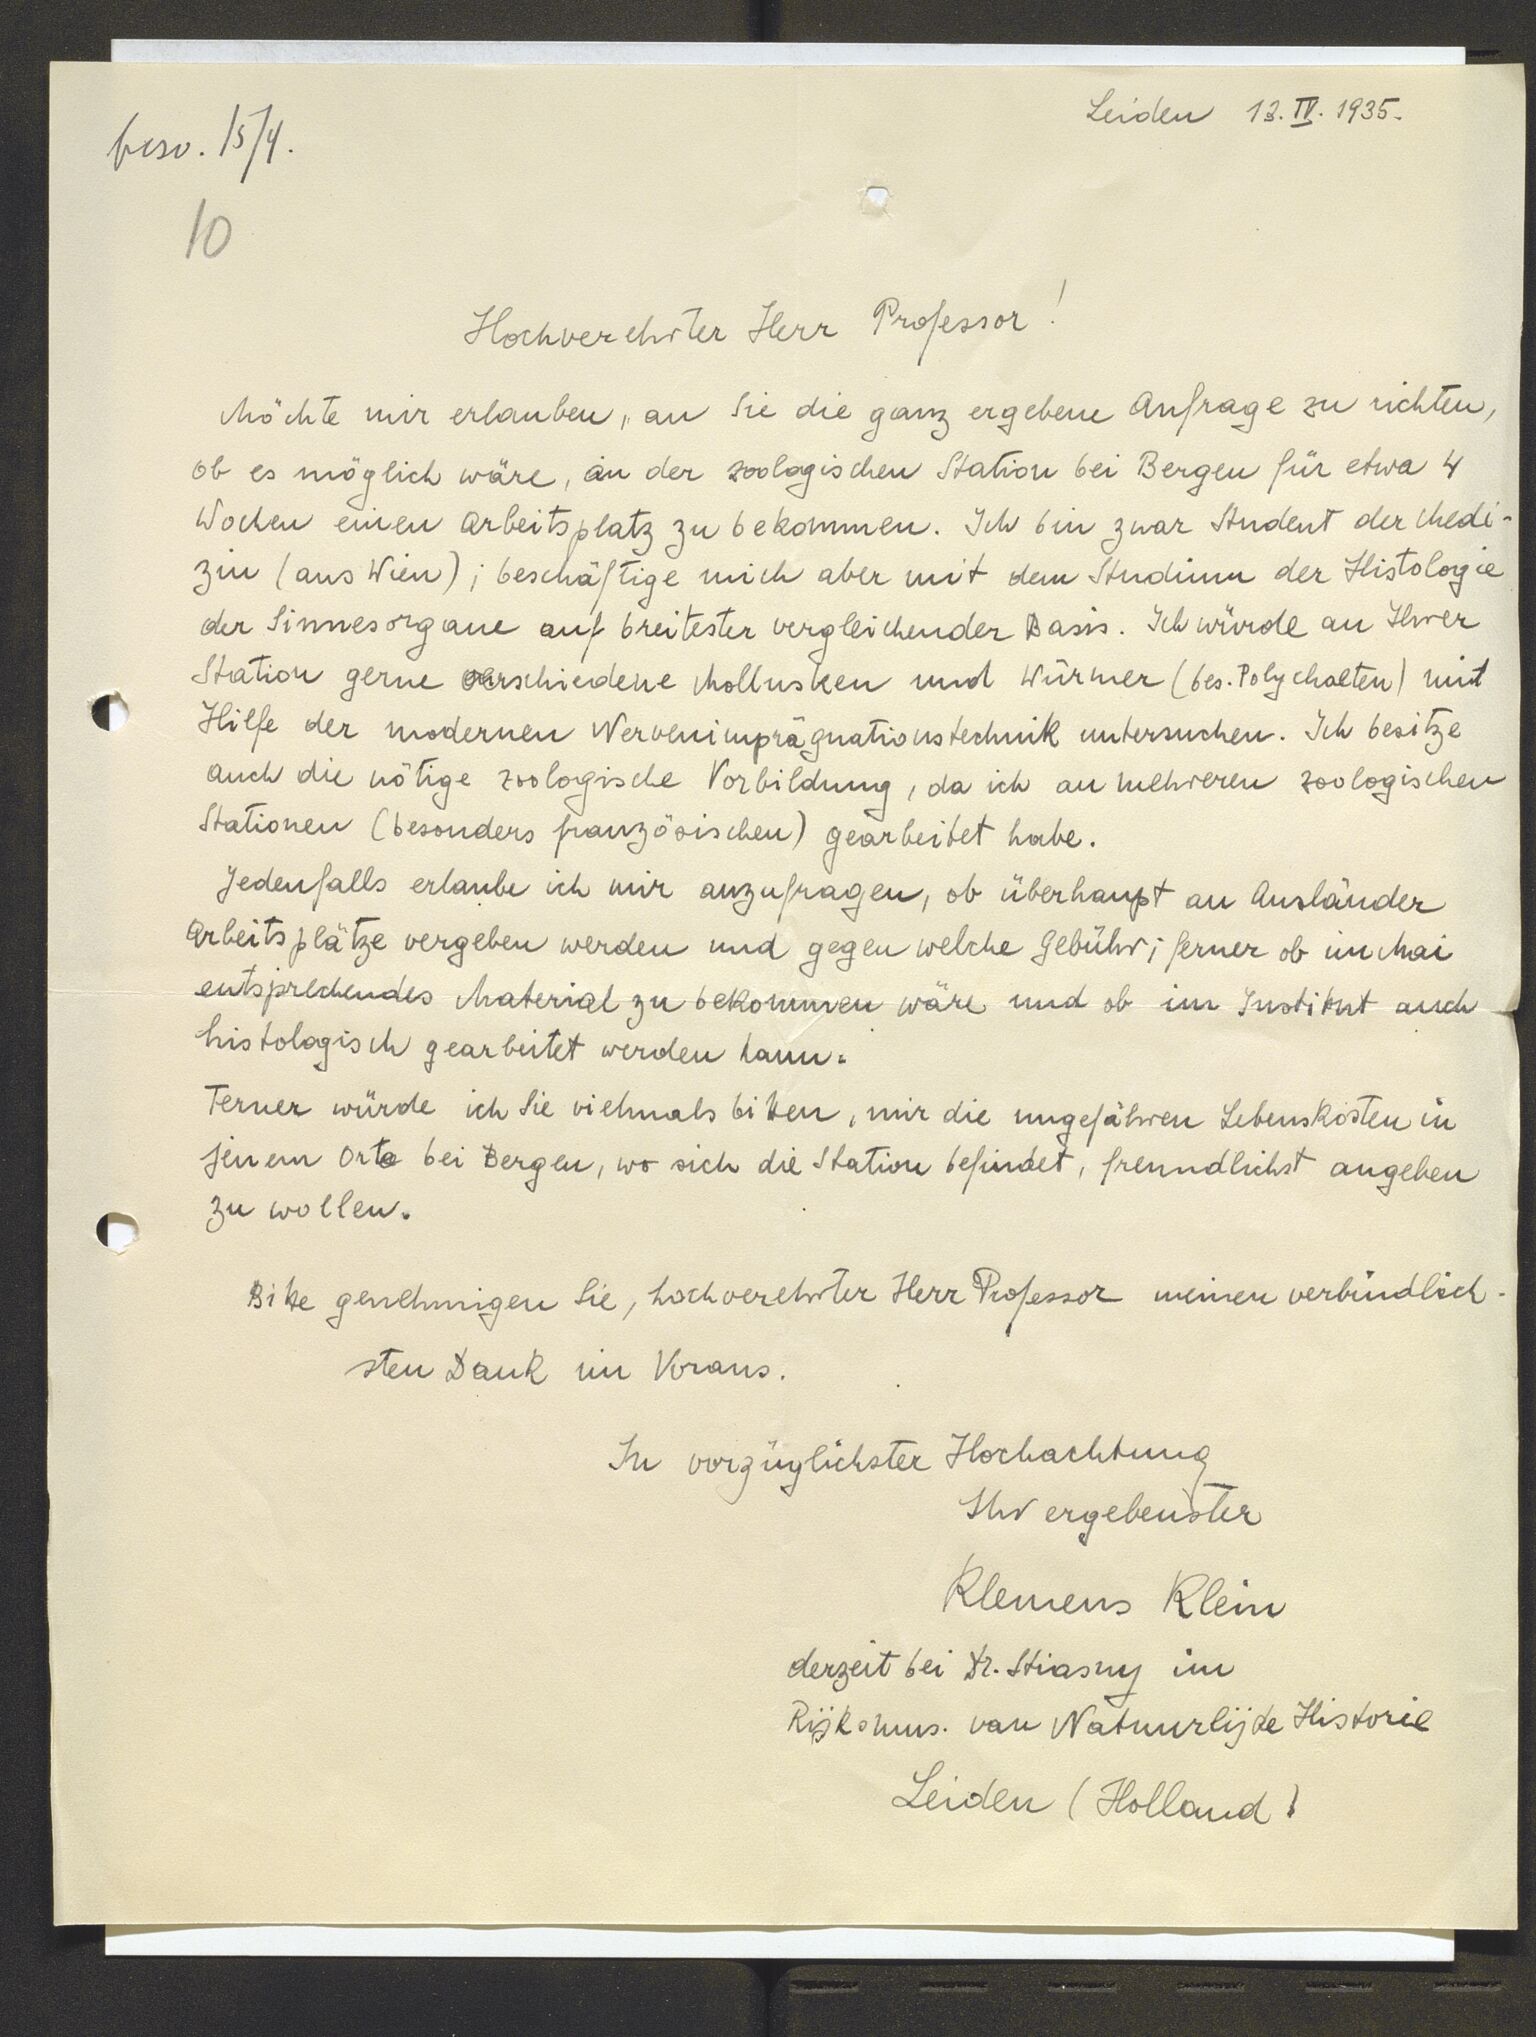 Leiden 12. IV. 1935.
besv. 15/4.
10
Hochverehrter Herr Professor!
Möchte mir erlauben, an Sie die ganz ergebene Anfrage zu richten,
ob es möglich wäre, an der zoologischen Station bei Bergen für etwa 4
Wochen einen Arbeitsplatz zu bekommen. Ich bin zwar Student der Medi-
zin (aus Wien); beschäftige mich aber mit dem Studium der Histologie
der Sinnesorgane auf breitester vergleichender Basis. Ich würde an Ihrer
Station gerne verschiedene Mollusken und Würmer (bes. Polychaeten) mit
Hilfe der modernen Nervenimprägnationstechnik untersuchen. Ich besitze
auch die nötige zoologische Vorbildung, da ich an mehreren zoologischen
Stationen (besonders französischen) gearbeitet habe.
Jedenfalls erlaube ich mir anzufragen, ob überhaupt an Ausländer
Arbeitsplätze vergeben werden und gegen welche Gebühr; ferner ob im Mai
entsprechendes Material zu bekommen wäre und ob im Institut auch
histologisch gearbeitet werden kann.
Ferner würde ich Sie vielmals bitten, mir die ungefähren Lebenskosten in
jenem Orte bei Bergen, wo sich die Station befindet, freundlichst angeben
zu wollen.
Bitte genehmigen Sie, hochverehrter Herr Professor meinen verbindlich-
sten Dank im Voraus.
In vorzüglichster Hochachtung
Ihr ergebenster
Klemens Klein
derzeit bei Dr. Stiasny im
Rijksmus. van Natuurlijke Historie
Leiden (Holland)